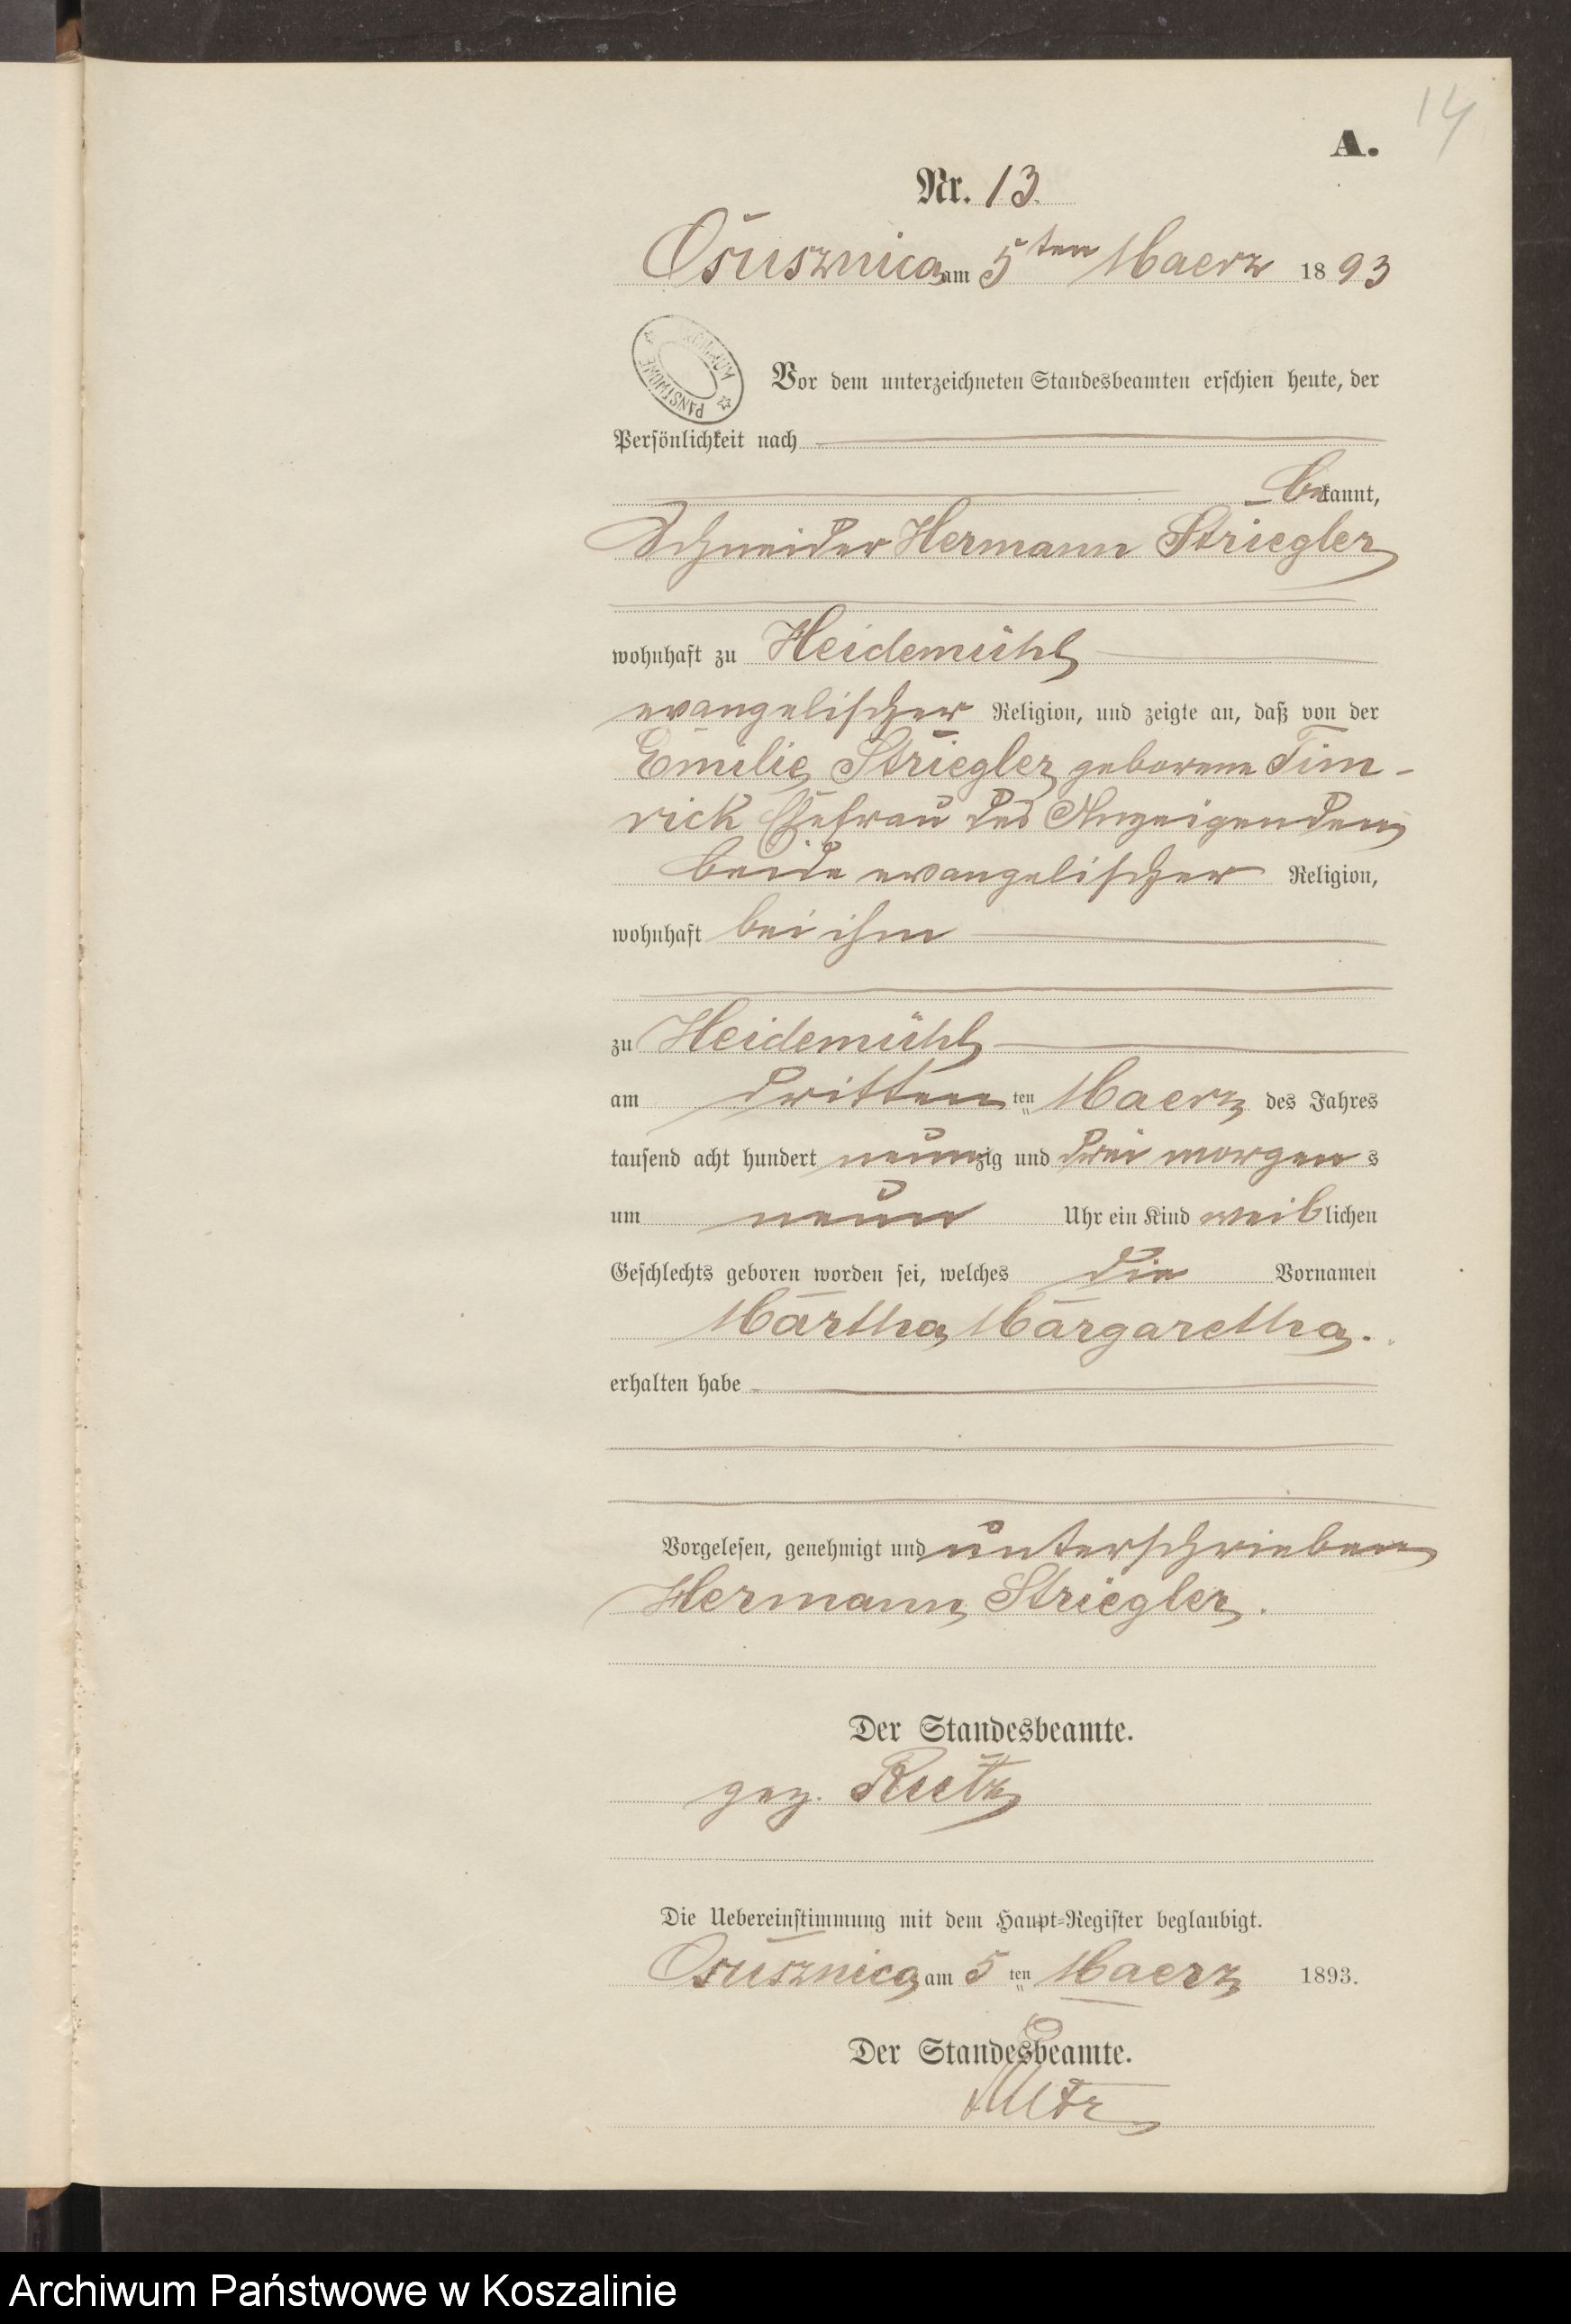 14
A.
Nr. 13.
Osusznica am 5ten Maerz 1893
PAŃSTWOWE
Vor dem unterzeichneten Standesbeamten erschien heute, der
Persönlichkeit nach
bekannt,
Schneider Hermann Striegler
wohnhaft zu Heidemühl
evangelischer Religion, und zeigte an, daß von der
Emilie Striegler geborene Tim-
rick Ehefrau des Anzeigenden
beide evangelischer Religion,
wohnhaft bei ihm
zu Heidemühl
am dritten ten Maerz des Jahres
tausend acht hundert neunzig und drei morgens
um neun Uhr ein Kind weiblichen
Geschlechts geboren worden sei, welches die Vornamen
Martha Margaretha.
erhalten habe
Vorgelesen, genehmigt und unterschrieben
Hermann Striegler.
Der Standesbeamte.
gez. Rutz
Die Uebereinstimmung mit dem Haupt-Register beglaubigt.
Osusznica am 5 ten Maerz 1893.
Der Standesbeamte.
Rutz
Archiwum Państwowe w Koszalinie